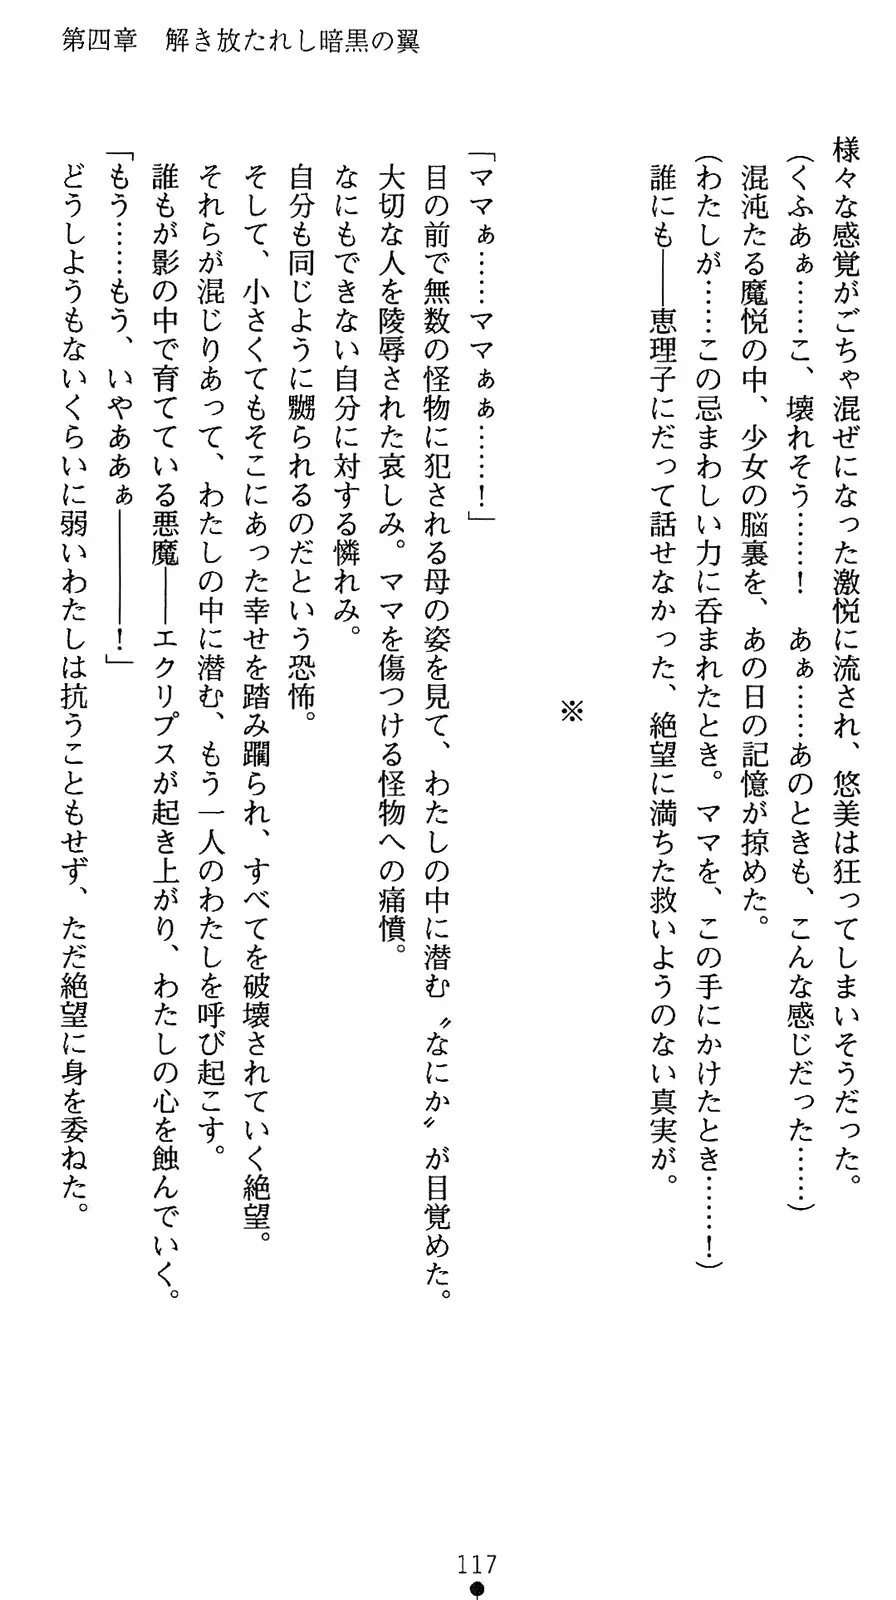 第四章　解き放たれし暗黒の翼
様々な感覚がごちゃ混ぜになった激悦に流され、悠美は狂ってしまいそうだった。
（くふあぁ……こ、壊れそう……！　あぁ……あのときも、こんな感じだった……）
混沌たる魔悦の中、少女の脳裏を、あの日の記憶が掠めた。
（わたしが……この忌まわしい力に呑まれたとき。ママを、この手にかけたとき……！）
誰にも――恵理子にだって話せなかった、絶望に満ちた救いようのない真実が。
※
「ママぁ……ママぁぁ……！」
目の前で無数の怪物に犯される母の姿を見て、わたしの中に潜む〝なにか〟が目覚めた。
大切な人を陵辱された哀しみ。ママを傷つける怪物への痛憤。
なにもできない自分に対する憐れみ。
自分も同じように嬲られるのだという恐怖。
そして、小さくてもそこにあった幸せを踏み躙られ、すべてを破壊されていく絶望。
それらが混じりあって、わたしの中に潜む、もう一人のわたしを呼び起こす。
誰もが影の中で育てている悪魔――エクリプスが起き上がり、わたしの心を蝕んでいく。
「もう……もう、いやああぁ――――！」
どうしようもないくらいに弱いわたしは抗うこともせず、ただ絶望に身を委ねた。
117